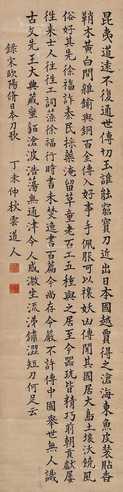 昆夷道遠不復通世傳切玉誰能窮寶刀近出日本國越賈得之滄海東魚皮裝貼香
鞘木黃白間雜鍮與銅百金傳入好事手佩服可以禳妖凶傳聞其國居大島土壤沃饒風
俗好其先徐福詐秦民採藥淹留童老百工五種與之居至今器玩皆精巧前朝貢獻屢
往來士人往往工詞藻徐福行時書未焚逸書百篇今尚存令嚴不許傳中國舉世無人識
古文先王大典藏蠻貊滄波浩蕩無通津令人感激坐流涕鏽澀短刀何足云
錄宋歐陽脩日本刀歌 丁未仲秋雲道人